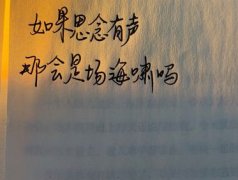 如果思念有声
那会是场海啸吗